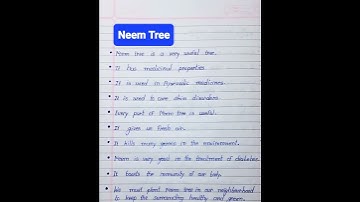 Neem Tree
Neem tree is a very useful tree.
It has medicinal properties
It is used in Ayurvedic medicines.
It is used to cure skin disorders
Every part of Neem tree is useful.
It gives us fresh air.
It kills many germs in the environment.
Neem is very good in the treatment of diabetes.
It boosts the immunity of our body.
We must plant Neem tree in our neighbourhood
to keep the surrounding healthy and green.